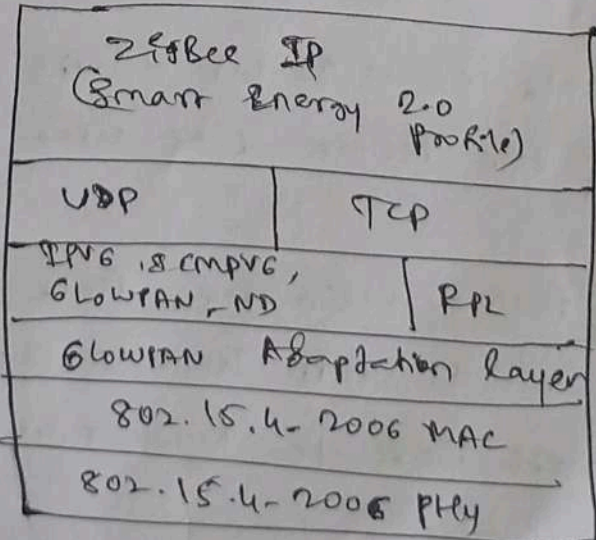 ZigBee IP
(Smart Energy 2.0
Profile)
UDP
TCP
IPV6, ICMPV6,
6LOWPAN-ND
RPL
6LOWPAN Adaptation Layer
802.15.4-2006 MAC
802.15.4-2006 PHY